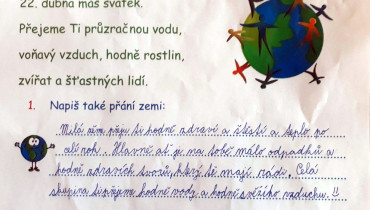 22. dubna máš svátek.
Přejeme Ti průzračnou vodu,
voňavý vzduch, hodně rostlin,
zvířat a šťastných lidí.
1. Napiš také přání zemi:
Milá zem, přeju ti hodně zdraví a štěstí a teplo po
celý rok. Hlavně ať je na tobě málo odpadků a
hodně zdravích tvorů, který tě mají rádi. Celá
skupina ti přejeme hodně vody a hodně svěžího vzduchu. !!